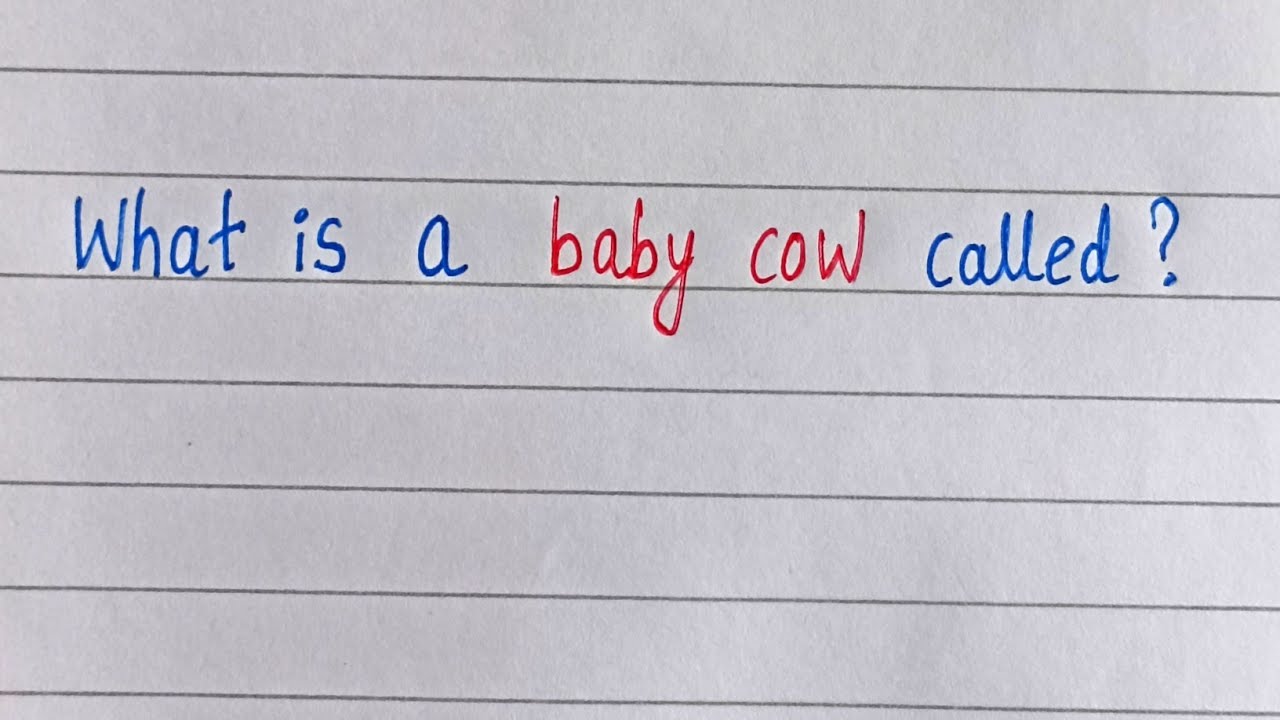 What is a baby cow called?